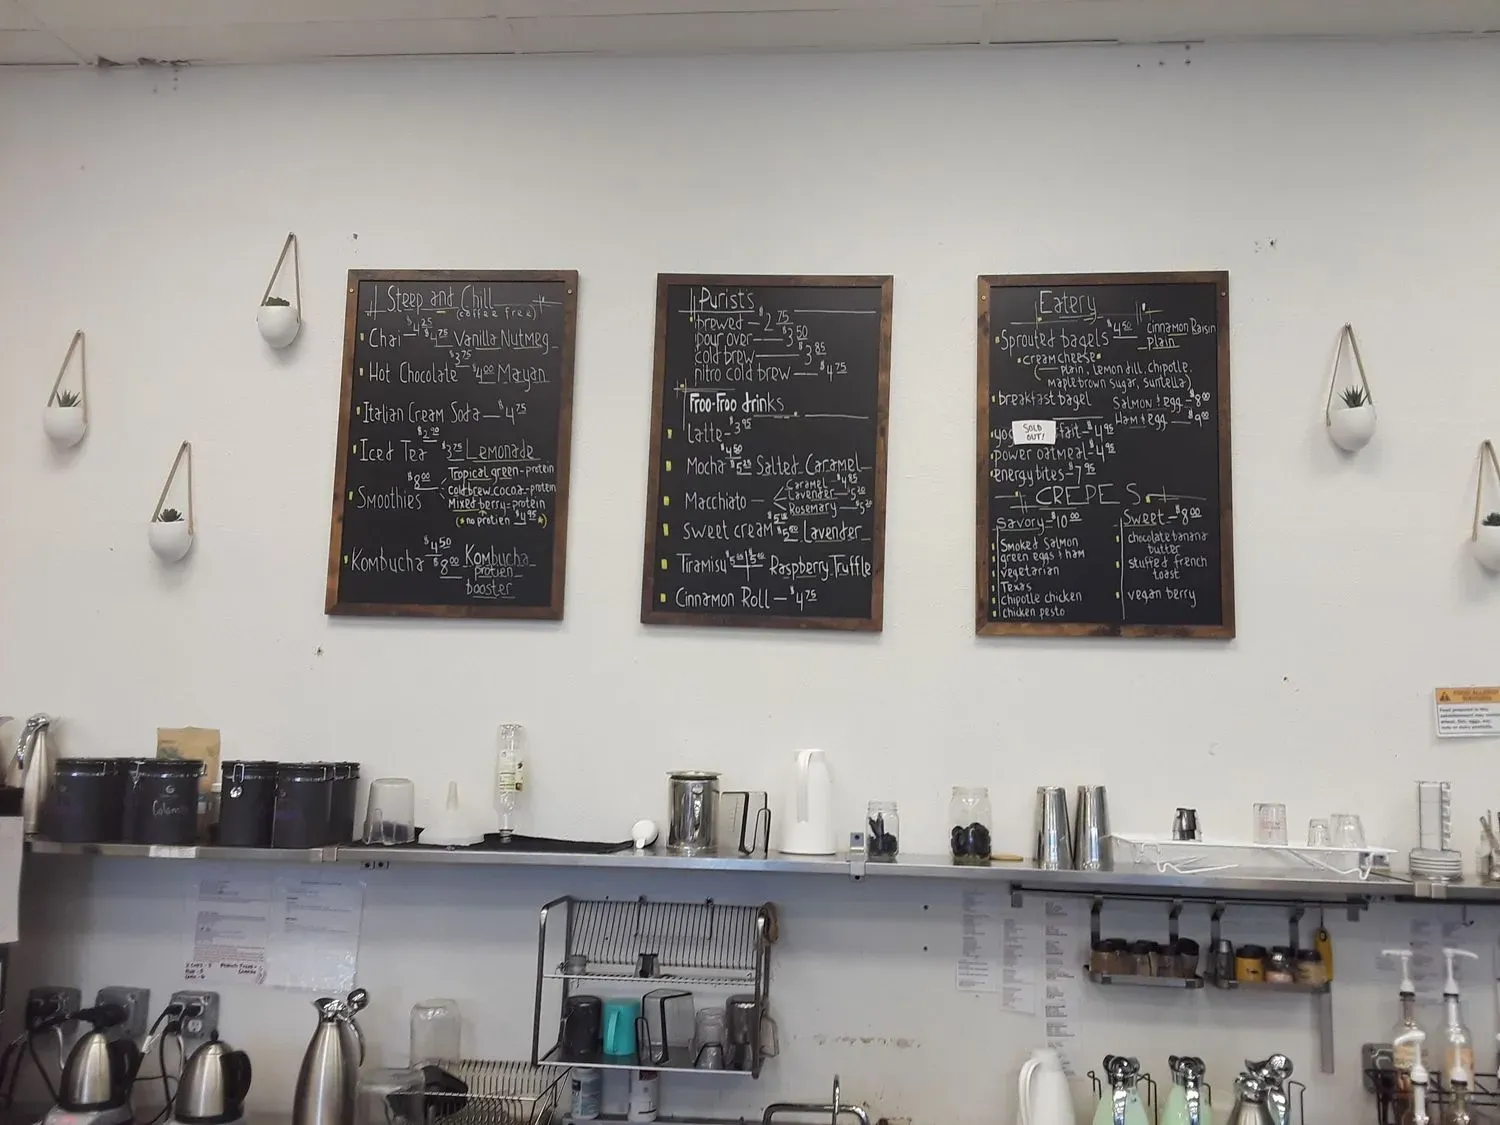 Steep and Chill
(coffee free)
Chai $4.25 $4.75 Vanilla Nutmeg
Hot Chocolate $3.75 $4.00 Mayan
Italian Cream Soda — $4.75
Iced Tea $2.90 $3.75 Lemonade
Smoothies $8.00 Tropical green-protein
cold brew cocoa-protein
Mixed berry-protein
(*no protien $4.95*)
Kombucha $4.50 $8.00 Kombucha
protien
booster
Purists
brewed — $2.75
pour over — $3.50
cold brew — $3.85
nitro cold brew — $4.75
Froo-Froo drinks
Latte - $3.95
Mocha $4.50 $5.25 Salted Caramel
Macchiato — Caramel - $4.85
Lavender - $5.20
Rosemary - $5.20
Sweet cream Lavender
Tiramisu Raspberry Truffle
Cinnamon Roll — $4.75
Eatery
Sprouted bagels $4.50 Cinnamon Raisin
Plain
• creamcheese •
(plain, lemon dill, chipotle,
maple brown sugar, suntella)
breakfast bagel Salmon & egg - $8.00
Ham & egg - $9.00
yog SOLD OUT! fait - $4.95
power oatmeal - $4.95
energy bites - $7.95
CREPES
Savory - $10.00
Smoked Salmon
green eggs & ham
vegetarian
Texas
chipotle chicken
chicken pesto
Sweet - $8.00
chocolate banana
butter
stuffed french
toast
vegan berry